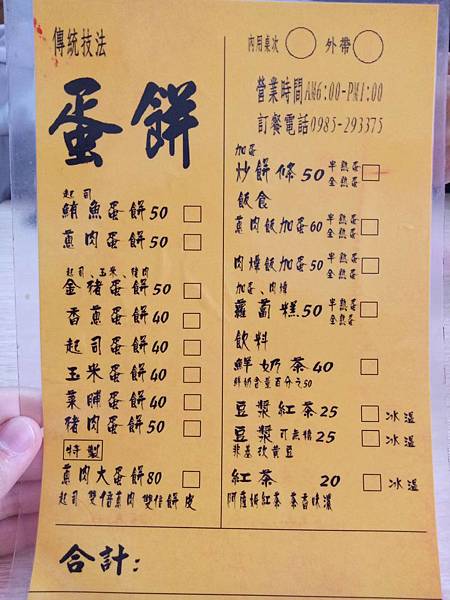 傳統技法
蛋餅
起司
鮪魚蛋餅50
蔥肉蛋餅50
起司、玉米、豬肉
金豬蛋餅50
香蔥蛋餅40
起司蛋餅40
玉米蛋餅40
菜脯蛋餅40
豬肉蛋餅50
特製
蔥肉大蛋餅80
起司 雙倍蔥肉 雙倍餅皮
內用桌次 外帶
營業時間AM6:00-PM1:00
訂餐電話0985-293375
加蛋
炒餅條50 半熟蛋 全熟蛋
飯食
蔥肉飯加蛋60 半熟蛋 全熟蛋
肉燥飯加蛋50 半熟蛋 全熟蛋
加蛋、肉燥
蘿蔔糕50 半熟蛋 全熟蛋
飲料
鮮奶茶40
鮮奶含量百分之50
豆漿紅茶25 冰溫
豆漿可無糖25 冰溫
非基改黃豆
紅茶 20 冰溫
阿薩姆紅茶 茶香味濃
合計: